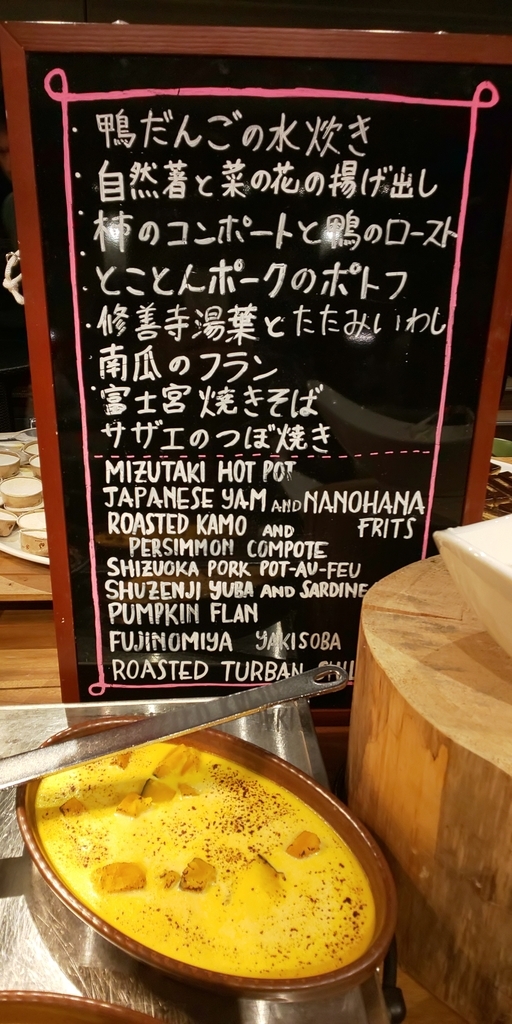 ・鴨だんごの水炊き
・自然薯と菜の花の揚げ出し
・柿のコンポートと鴨のロースト
・とことんポークのポトフ
・修善寺湯葉とたたみいわし
・南瓜のフラン
・富士宮焼きそば
・サザエのつぼ焼き
MIZUTAKI HOT POT
JAPANESE YAM AND NANOHANA
FRITS
ROASTED KAMO AND
PERSIMMON COMPOTE
SHIZUOKA PORK POT-AU-FEU
SHUZENJI YUBA AND SARDINE
PUMPKIN FLAN
FUJINOMIYA YAKISOBA
ROASTED TURBAN